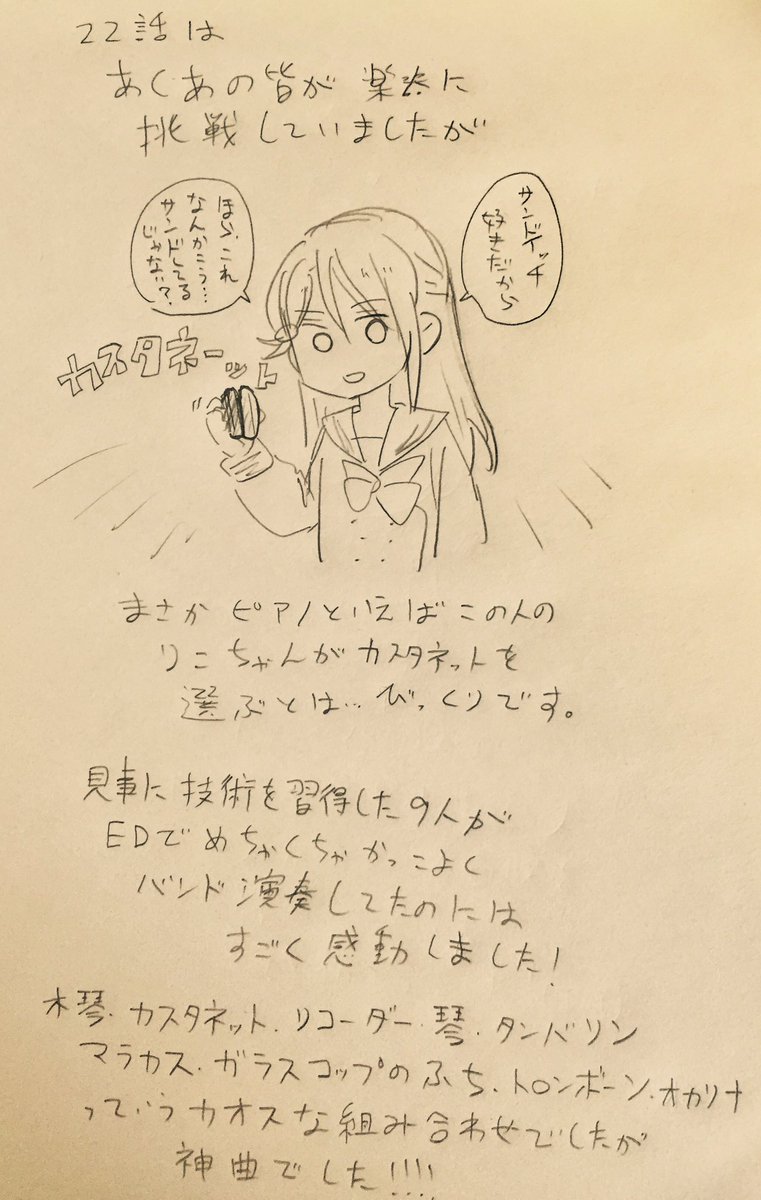 22話は
あくあの皆が楽器に
挑戦していましたが
サンドイッチ
好きだから
ほら、これ
なんかこう…
サンドしてる
じゃない?
カスタネーット
まさかピアノといえばこの人の
りこちゃんがカスタネットを
選ぶとは…びっくりです。
見事に技術を習得した9人が
EDでめちゃくちゃかっこよく
バンド演奏してたのには
すごく感動しました!
木琴.カスタネット.リコーダー.琴.タンバリン
マラカス.ガラスコップのふち.トロンボーン.オカリナ
っていうカオスな組み合わせでしたが
神曲でした!!!!